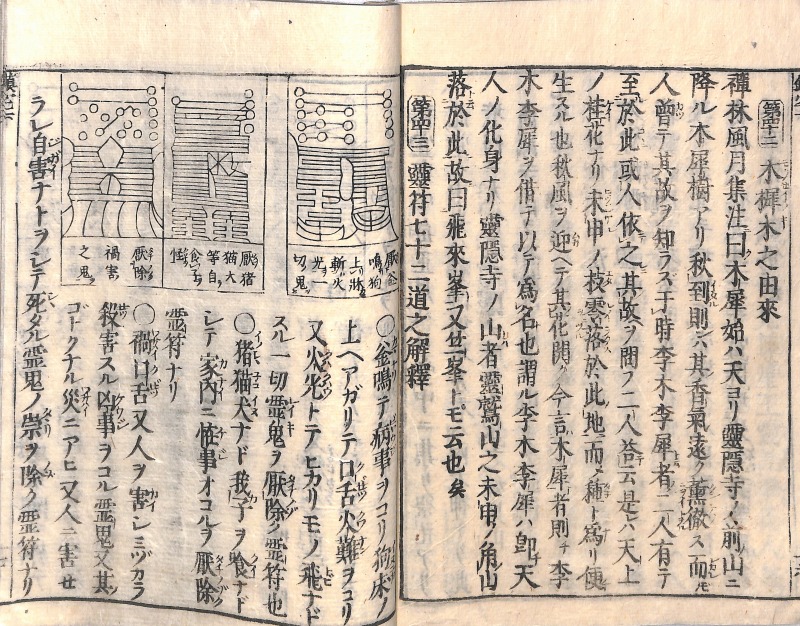 第四十二 木犀木之由來
禪林風月集注曰木犀始ハ天ヨリ靈隱寺ノ前山ニ
降ル本犀樹アリ秋到則ハ其香氣遠ク薰徹ス而モ
人曾テ其故ヲ知ラズ于時李木李犀者二人有テ
至於此或人依之其故ヲ問フ二人答云是ハ天上
ノ桂花ナリ未申ノ枝零落於此地而メ種ト為リ便
生スル也秋風ヲ迎ヘテ其花開ク今言木犀者則チ李
木李犀ヲ借テ以テ為名也謂ル李木李犀ハ卽天
人ノ化身ナリ靈隱寺ノ山者靈鷲山之未申ノ角山
落於此故曰飛來峯又丗一峯トモ云也矣
第四十三 靈符七十二道之解釋
厭釜
鳴狗
上牀
斬火
光一
切鬼
○釜鳴テ病事ヲコリ狗床ノ
上ヘアガリテ口舌火難ヲコリ
又火光トテヒカリモノ飛ナド
スル一切霊鬼ヲ厭除ク霊符也
厭猪
猫犬
等自
食
怪
○猪猫犬ナド我子ヲ食ナド
シテ家内ニ怪事オコルヲ厭除
霊符ナリ
厭除
禍害
之鬼
○禍口舌又人ヲ害シミヅカラ
殺害スル凶事ヲコル霊鬼又其
ゴトクナル災ニアヒ又人ニ害セ
ラレ自害ナトヲシテ死タル霊鬼ノ祟ヲ除ク霊符ナリ